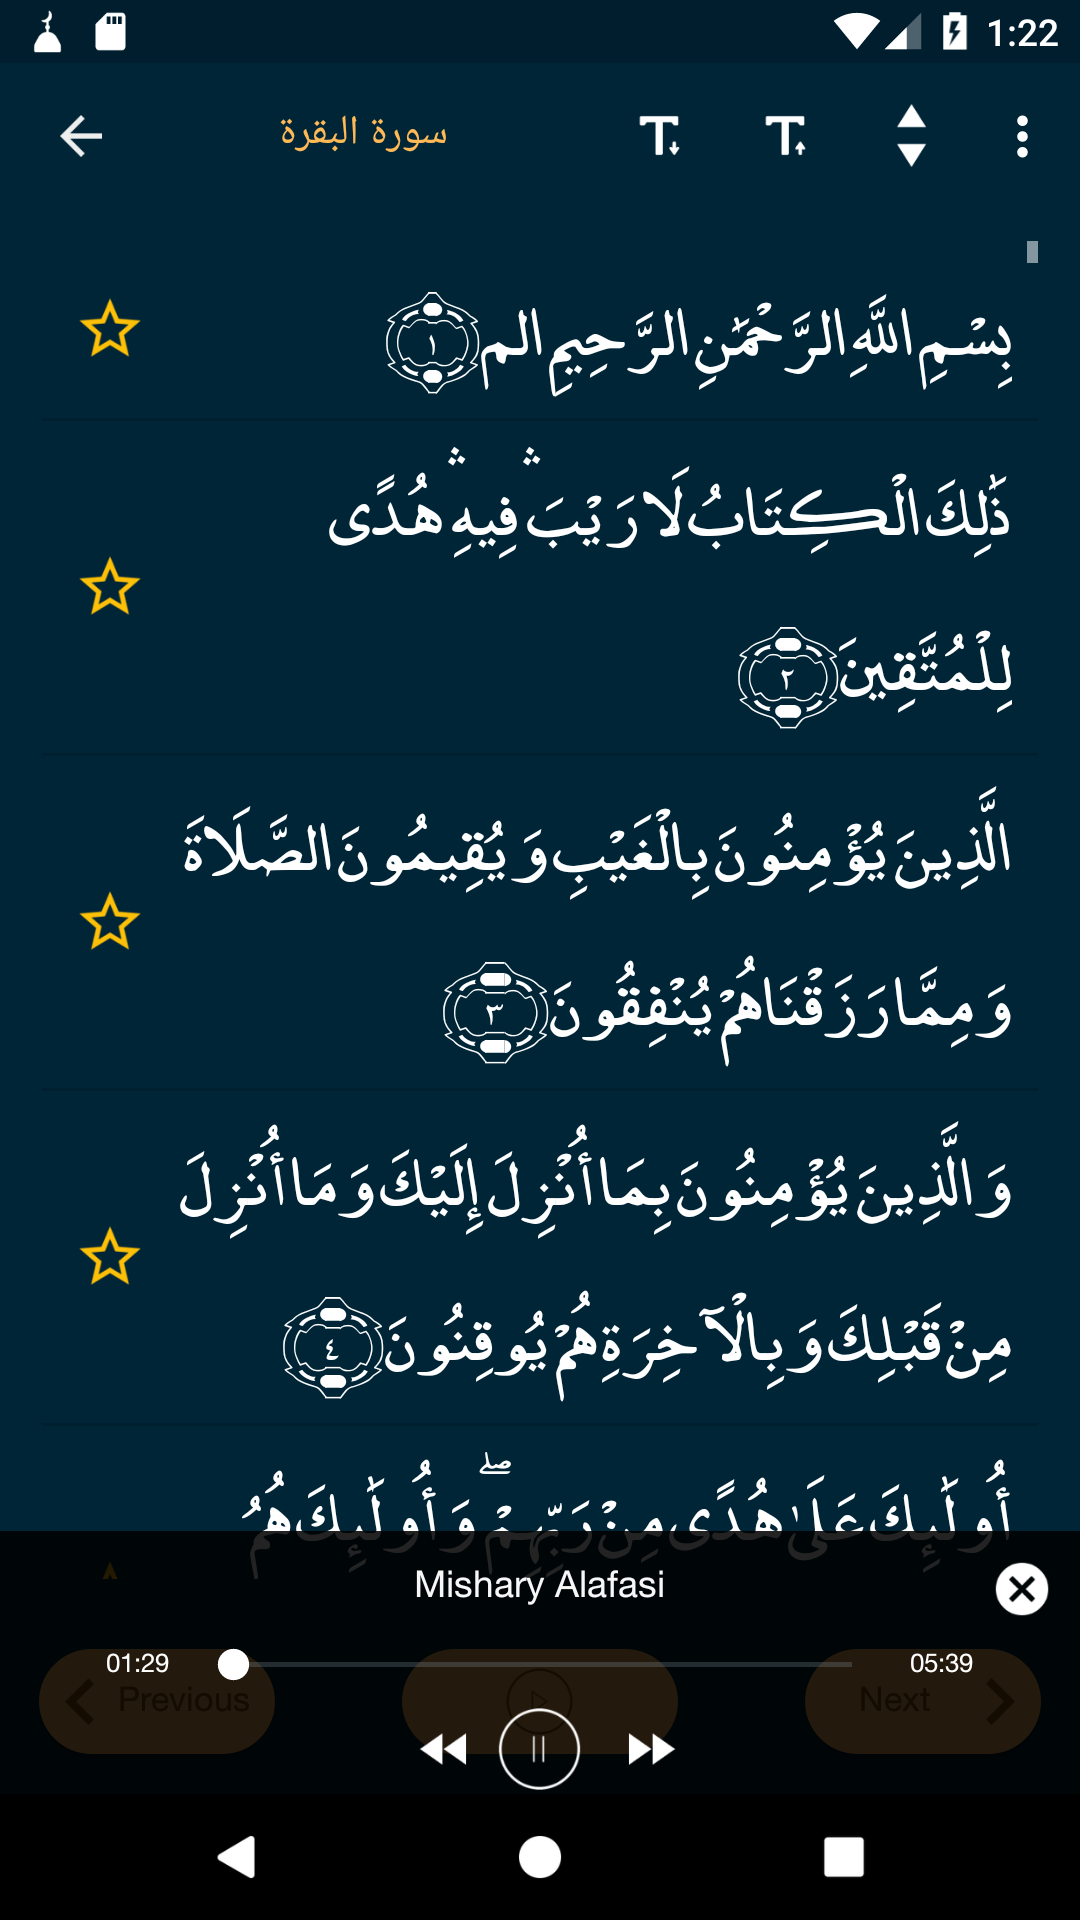 1:22
سورة البقرة
بِسْمِ اللَّهِ الرَّحْمَٰنِ الرَّحِيمِ الم ١
ذَٰلِكَ الْكِتَابُ لَا رَيْبَ ۛ فِيهِ ۛ هُدًى
لِلْمُتَّقِينَ ٢
الَّذِينَ يُؤْمِنُونَ بِالْغَيْبِ وَيُقِيمُونَ الصَّلَاةَ
وَمِمَّا رَزَقْنَاهُمْ يُنْفِقُونَ ٣
وَالَّذِينَ يُؤْمِنُونَ بِمَا أُنْزِلَ إِلَيْكَ وَمَا أُنْزِلَ
مِنْ قَبْلِكَ وَبِالْآخِرَةِ هُمْ يُوقِنُونَ ٤
أُولَٰئِكَ عَلَىٰ هُدًى مِنْ رَبِّهِمْ ۖ وَأُولَٰئِكَ هُمُ
Mishary Alafasi
01:29 05:39
Previous Next